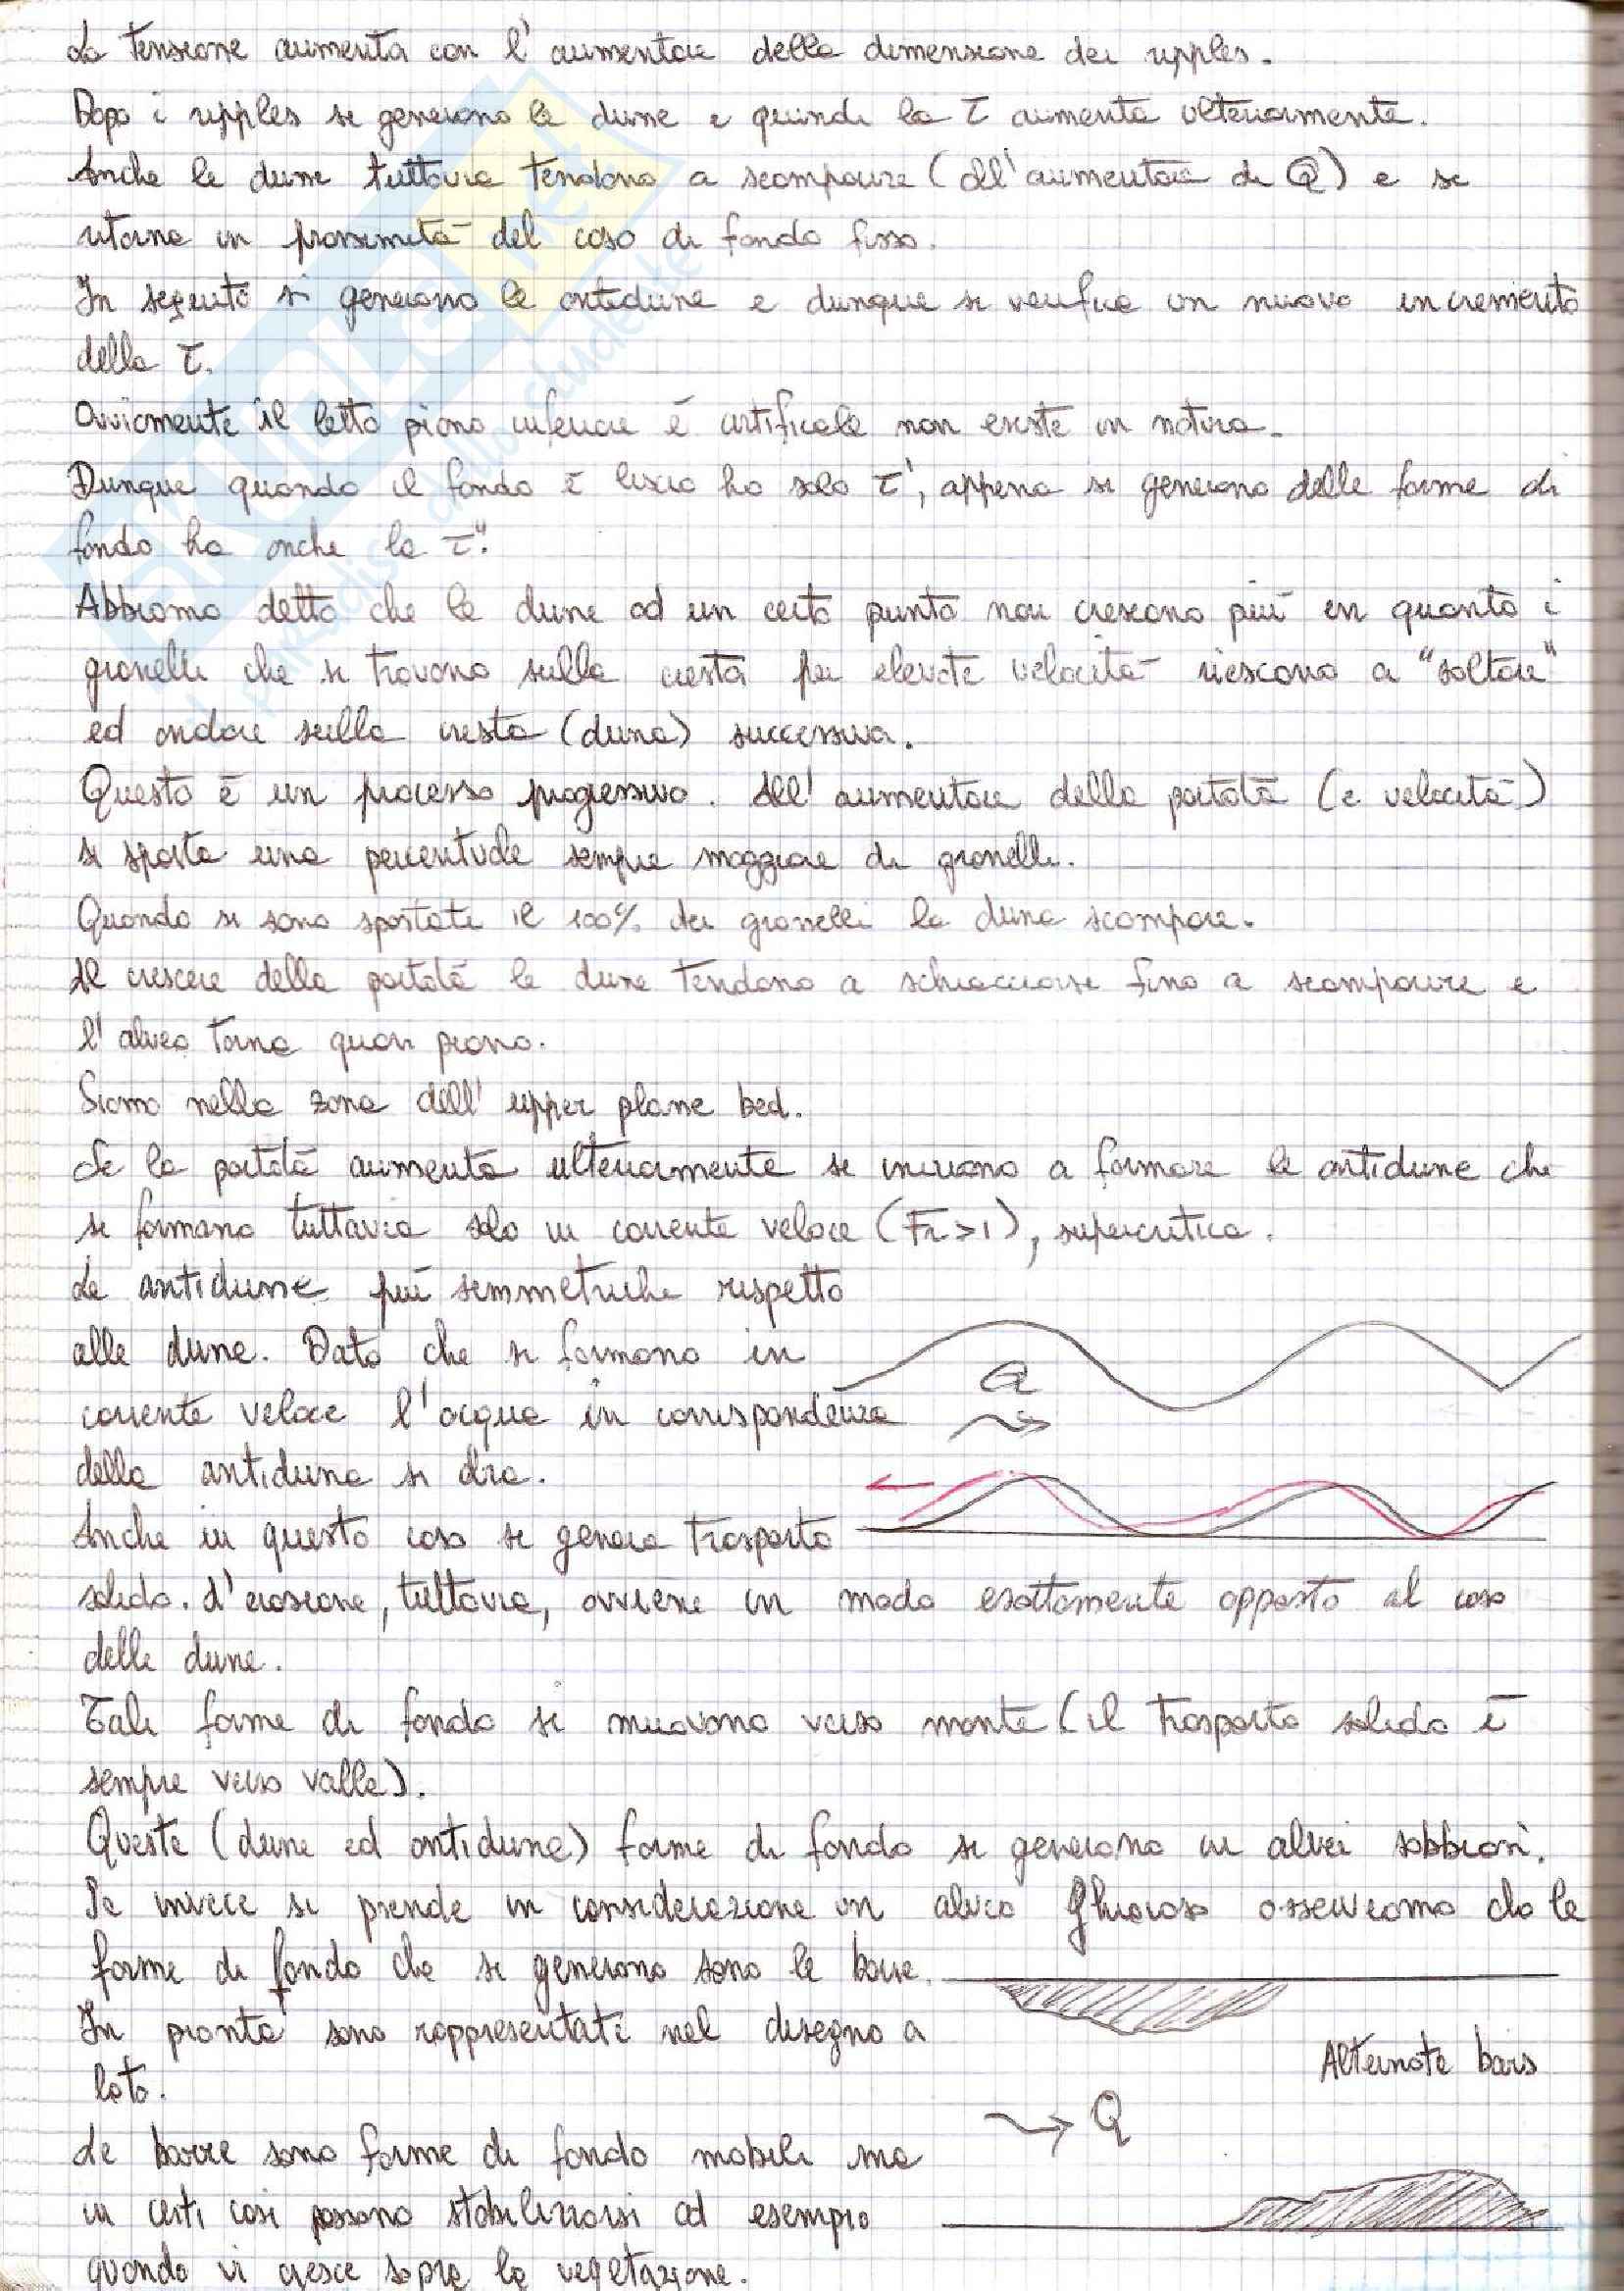 La tensione aumenta con l'aumentare della dimensione dei ripples.
Dopo i ripples si generano le dune e quindi la τ aumenta ulteriormente.
Anche le dune tuttavia tendono a scomparire (all'aumentare di Q) e si
ritorna in prossimità del caso di fondo fisso.
In seguito si generano le antidune e dunque si verifica un nuovo incremento
della τ.
Ovviamente il letto piano inferiore è artificiale non esiste in natura.
Dunque quando il fondo è liscio ho solo τ', appena si generano delle forme di
fondo ho anche la τ".
Abbiamo detto che le dune ad un certo punto non crescono più in quanto i
granelli che si trovano sulla cresta per elevate velocità riescono a "saltare"
ed andare sulla cresta (duna) successiva.
Questo è un processo progressivo. All'aumentare della portata (e velocità)
si sposta una percentuale sempre maggiore di granelli.
Quando si sono spostati il 100% dei granelli la duna scompare.
Al crescere della portata le dune tendono a schiacciarsi fino a scomparire e
l'alveo torna quasi piano.
Siamo nella zona dell'upper plane bed.
Se la portata aumenta ulteriormente si iniziano a formare le antidune che
si formano tuttavia solo in corrente veloce (Fr>1), supercritica.
Le antidune più simmetriche rispetto
alle dune. Dato che si formano in
corrente veloce l'acqua in corrispondenza
della antiduna si alza.
Q
Anche in questo caso si genera trasporto
solido. L'erosione, tuttavia, avviene in modo esattamente opposto al caso
delle dune.
Tali forme di fondo si muovono verso monte (il trasporto solido è
sempre verso valle).
Queste (dune ed antidune) forme di fondo si generano in alvei sabbiosi.
Se invece si prende in considerazione un alveo ghiaioso osserviamo che le
forme di fondo che si generano sono le barre.
In pianta sono rappresentati nel disegno a
lato.
Alternate bars
Q
Le barre sono forme di fondo mobili ma
in certi casi possono stabilizzarsi ad esempio
quando vi cresce sopra la vegetazione.